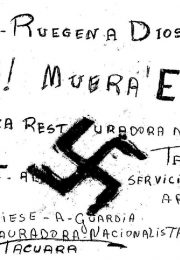 - RUEGEN A DIOS
! MUERA' E
A REST URADORA N
TA
- A SERVICI
A
IESE - A - GUARDIA
AURADORA NACIONALISTA
TACUARA